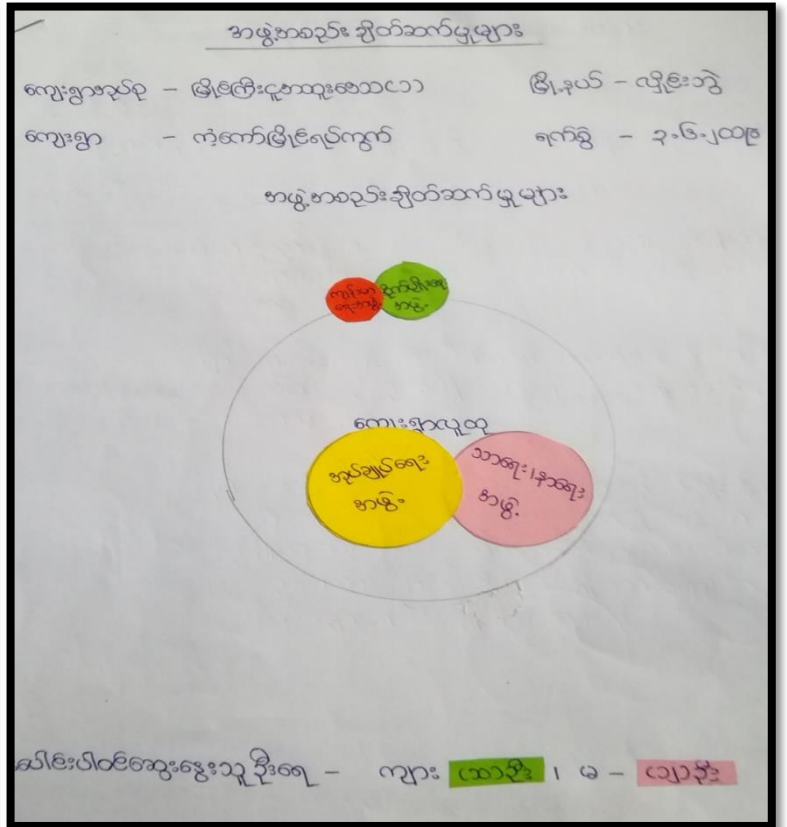 အဖွဲ့အစည်း ချိတ်ဆက်မှုများ
ကျေးရွာအုပ်စု – မြိုင်ကြီးငူအထူးဒေသ (၁)
မြို့နယ် – လှိုင်းဘွဲ့
ကျေးရွာ – ကံ့ကော်မြိုင်ရပ်ကွက်
ရက်စွဲ – ၃.၆.၂၀၁၉
အဖွဲ့အစည်းချိတ်ဆက်မှုများ
ကျန်းမာရေးအဖွဲ့
စိုက်ပျိုးရေး
အဖွဲ့
ကျေးရွာလူထု
အုပ်ချုပ်ရေး
အဖွဲ့
သာရေး၊နာရေး
အဖွဲ့
ပါဝင်ဆွေးနွေးသူဦးရေ – ကျား ၊ မ –